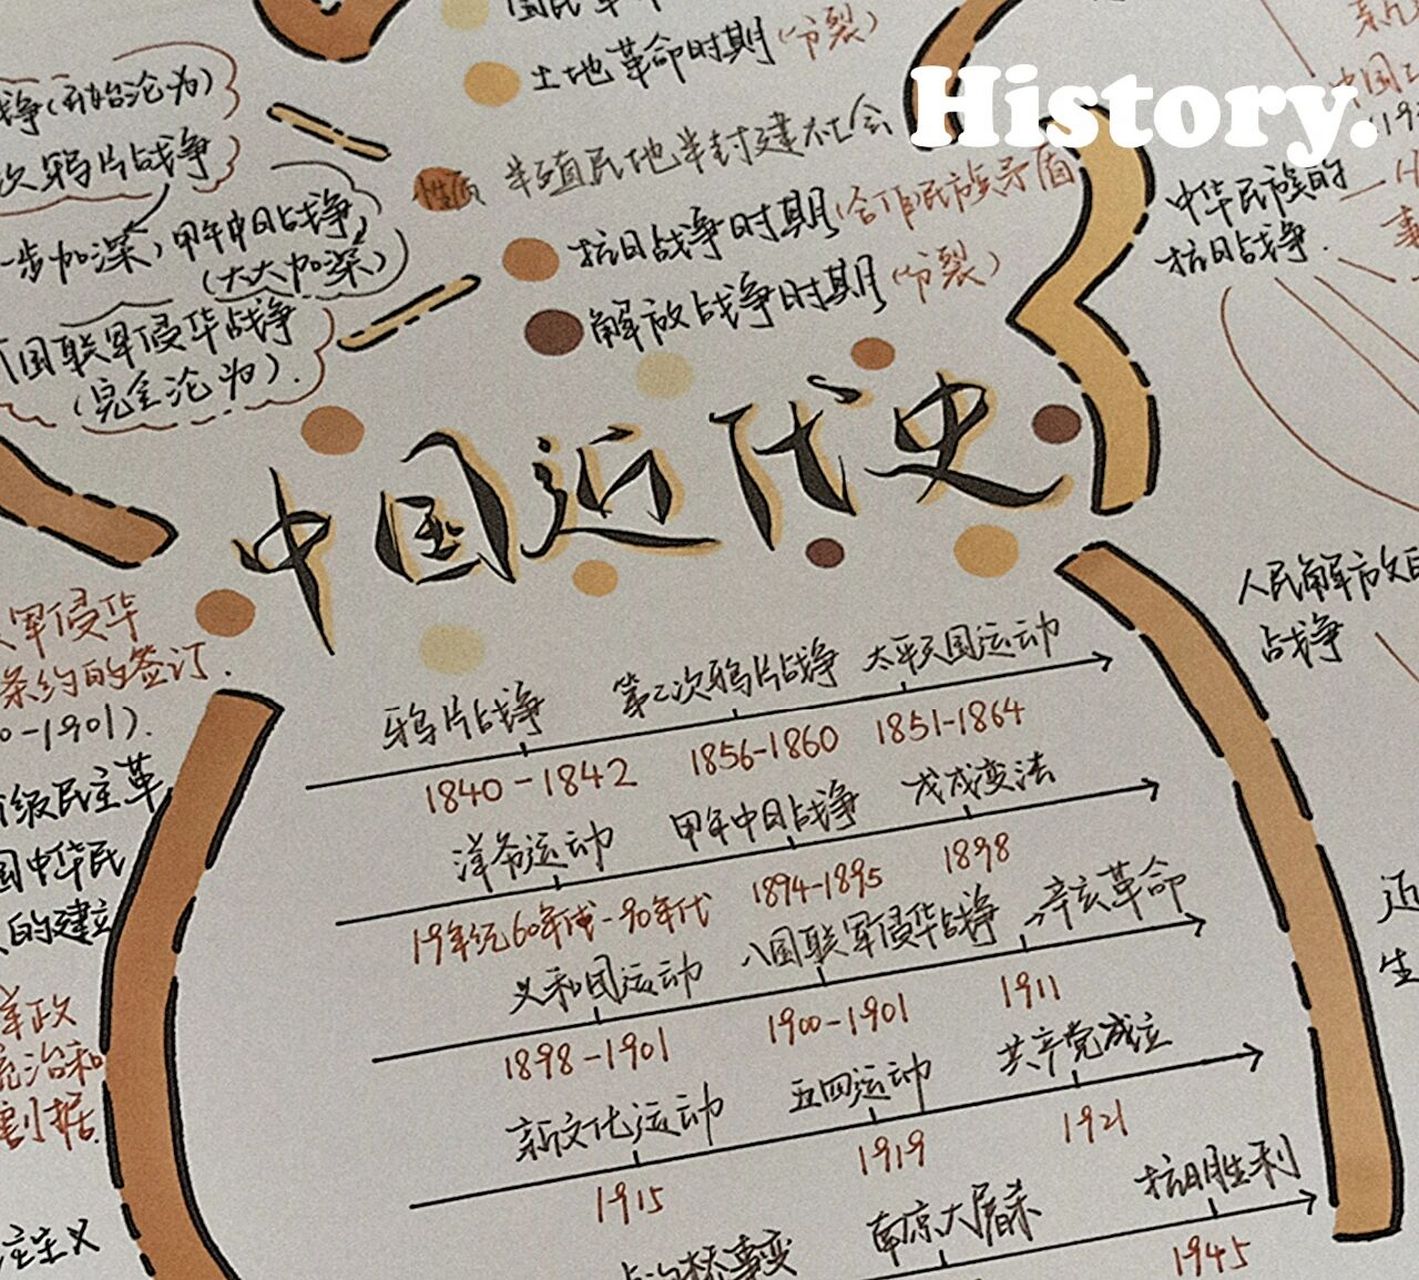 History.
土地革命时期(分裂)
战争(开始沦为)
次鸦片战争
一步加深) 甲午中日战争
(大大加深)
国联军侵华战争
(完全沦为).
性质 半殖民地半封建社会
抗日战争时期(合作)民族矛盾
解放战争时期(分裂)
中华民族的
抗日战争.
中国近代史
军侵华
条约的签订.
0-1901).
级民主革
国中华民
的建立
人民解放
战争
鸦片战争 第二次鸦片战争 太平天国运动
1840-1842 1856-1860 1851-1864
洋务运动 甲午中日战争 戊戌变法
19年纪60年代-90年代 1894-1895 1898
义和团运动 八国联军侵华战争 辛亥革命
1898-1901 1900-1901 1911
新文化运动 五四运动 共产党成立
1915 1919 1921
南京大屠杀 抗日胜利
1945
割据.
主义